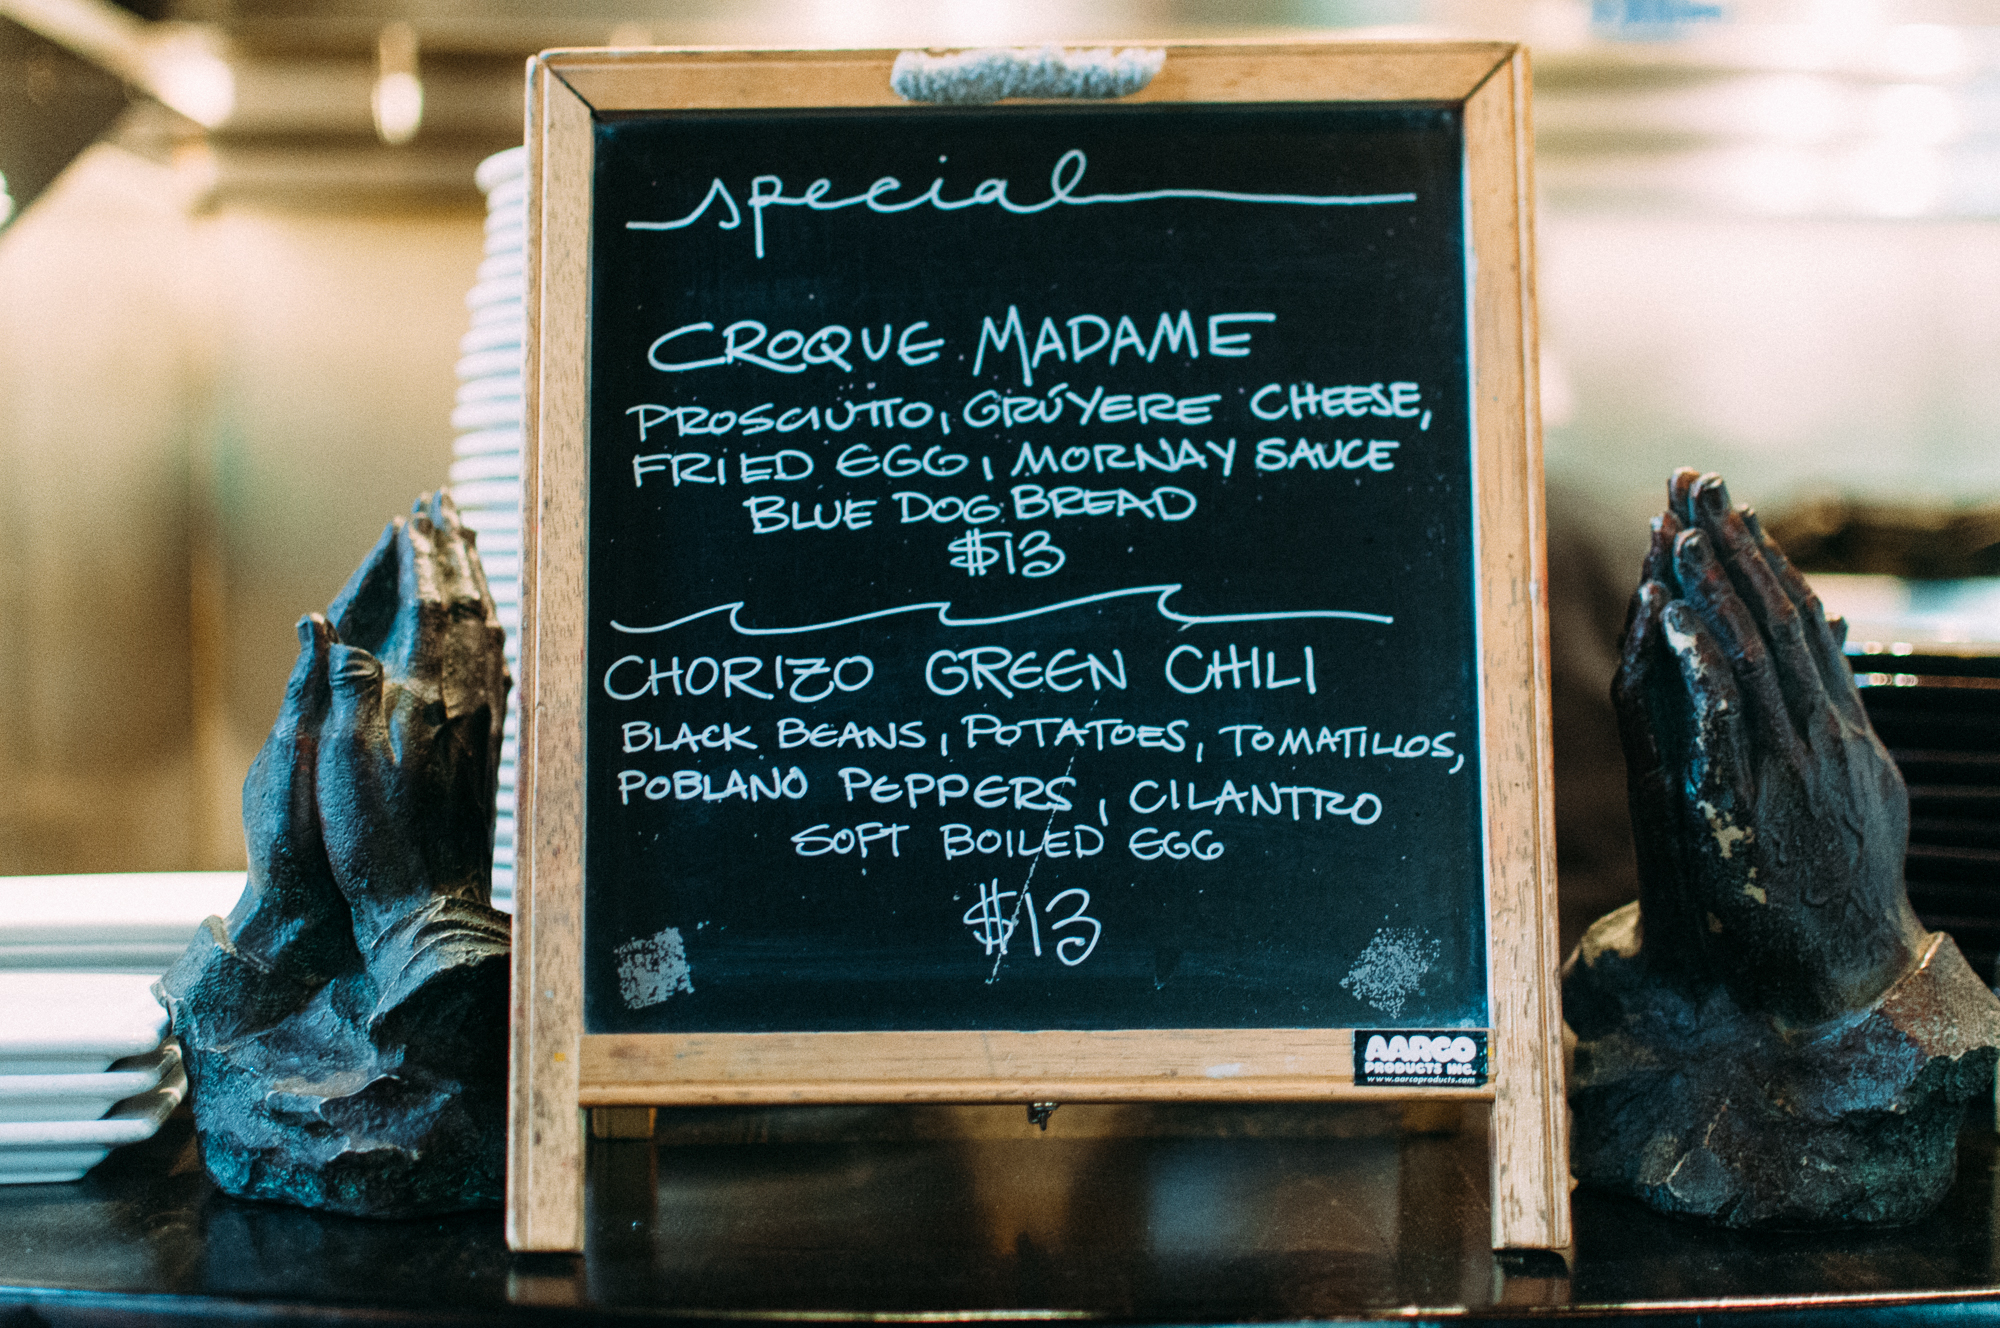 special
CROQUE MADAME
PROSCIUTTO, GRÚYERE CHEESE,
FRIED EGG, MORNAY SAUCE
BLUE DOG BREAD
$13
CHORIZO GREEN CHILI
BLACK BEANS, POTATOES, TOMATILLOS,
POBLANO PEPPERS, CILANTRO
SOFT BOILED EGG
$13
AARCO
PRODUCTS INC.
www.aarcoproducts.com